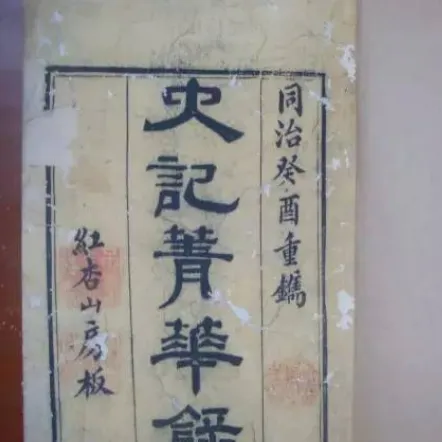 同治癸酉重鐫
史記菁華錄
紅杏山房板